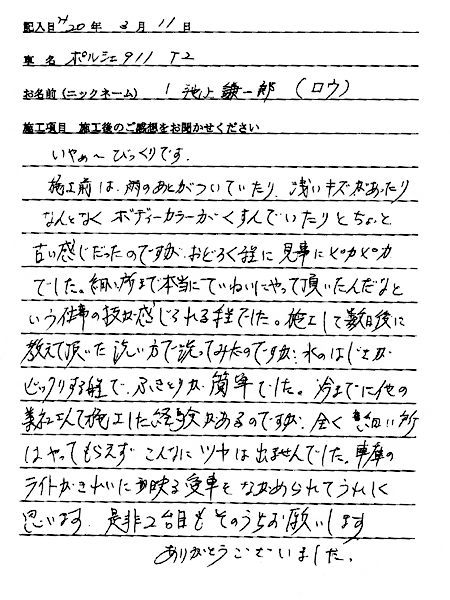 記入日 H20年 3月 11日
車 名 ポルシェ911 T2
お名前(ニックネーム) 池上謙一郎 (ロウ)
施工項目 施工後のご感想をお聞かせください
いやぁ〜びっくりです。
施工前は、雨のあとがついていたり、浅いキズがあったり
なんとなくボディーカラーがくすんでいたりとちょっと
古い感じだったのですが、おどろく程に見事にピカピカ
でした。細い所まで本当にていねいにやって頂いたんだなと
いう仕事の技が感じられる程でした。施工して数日後に
教えて頂いた洗い方で洗ってみたのですが、水のはじきが
ビックリする程で、ふきとりが簡単でした。今までに他の
業社さんで施工した経験があるのですが、全く 細い所
はやってもらえず こんなにツヤは出ませんでした。車庫の
ライトがきれいに映る愛車をながめられてうれしく
思います。是非2台目もそのうちお願いします
ありがとうございました。